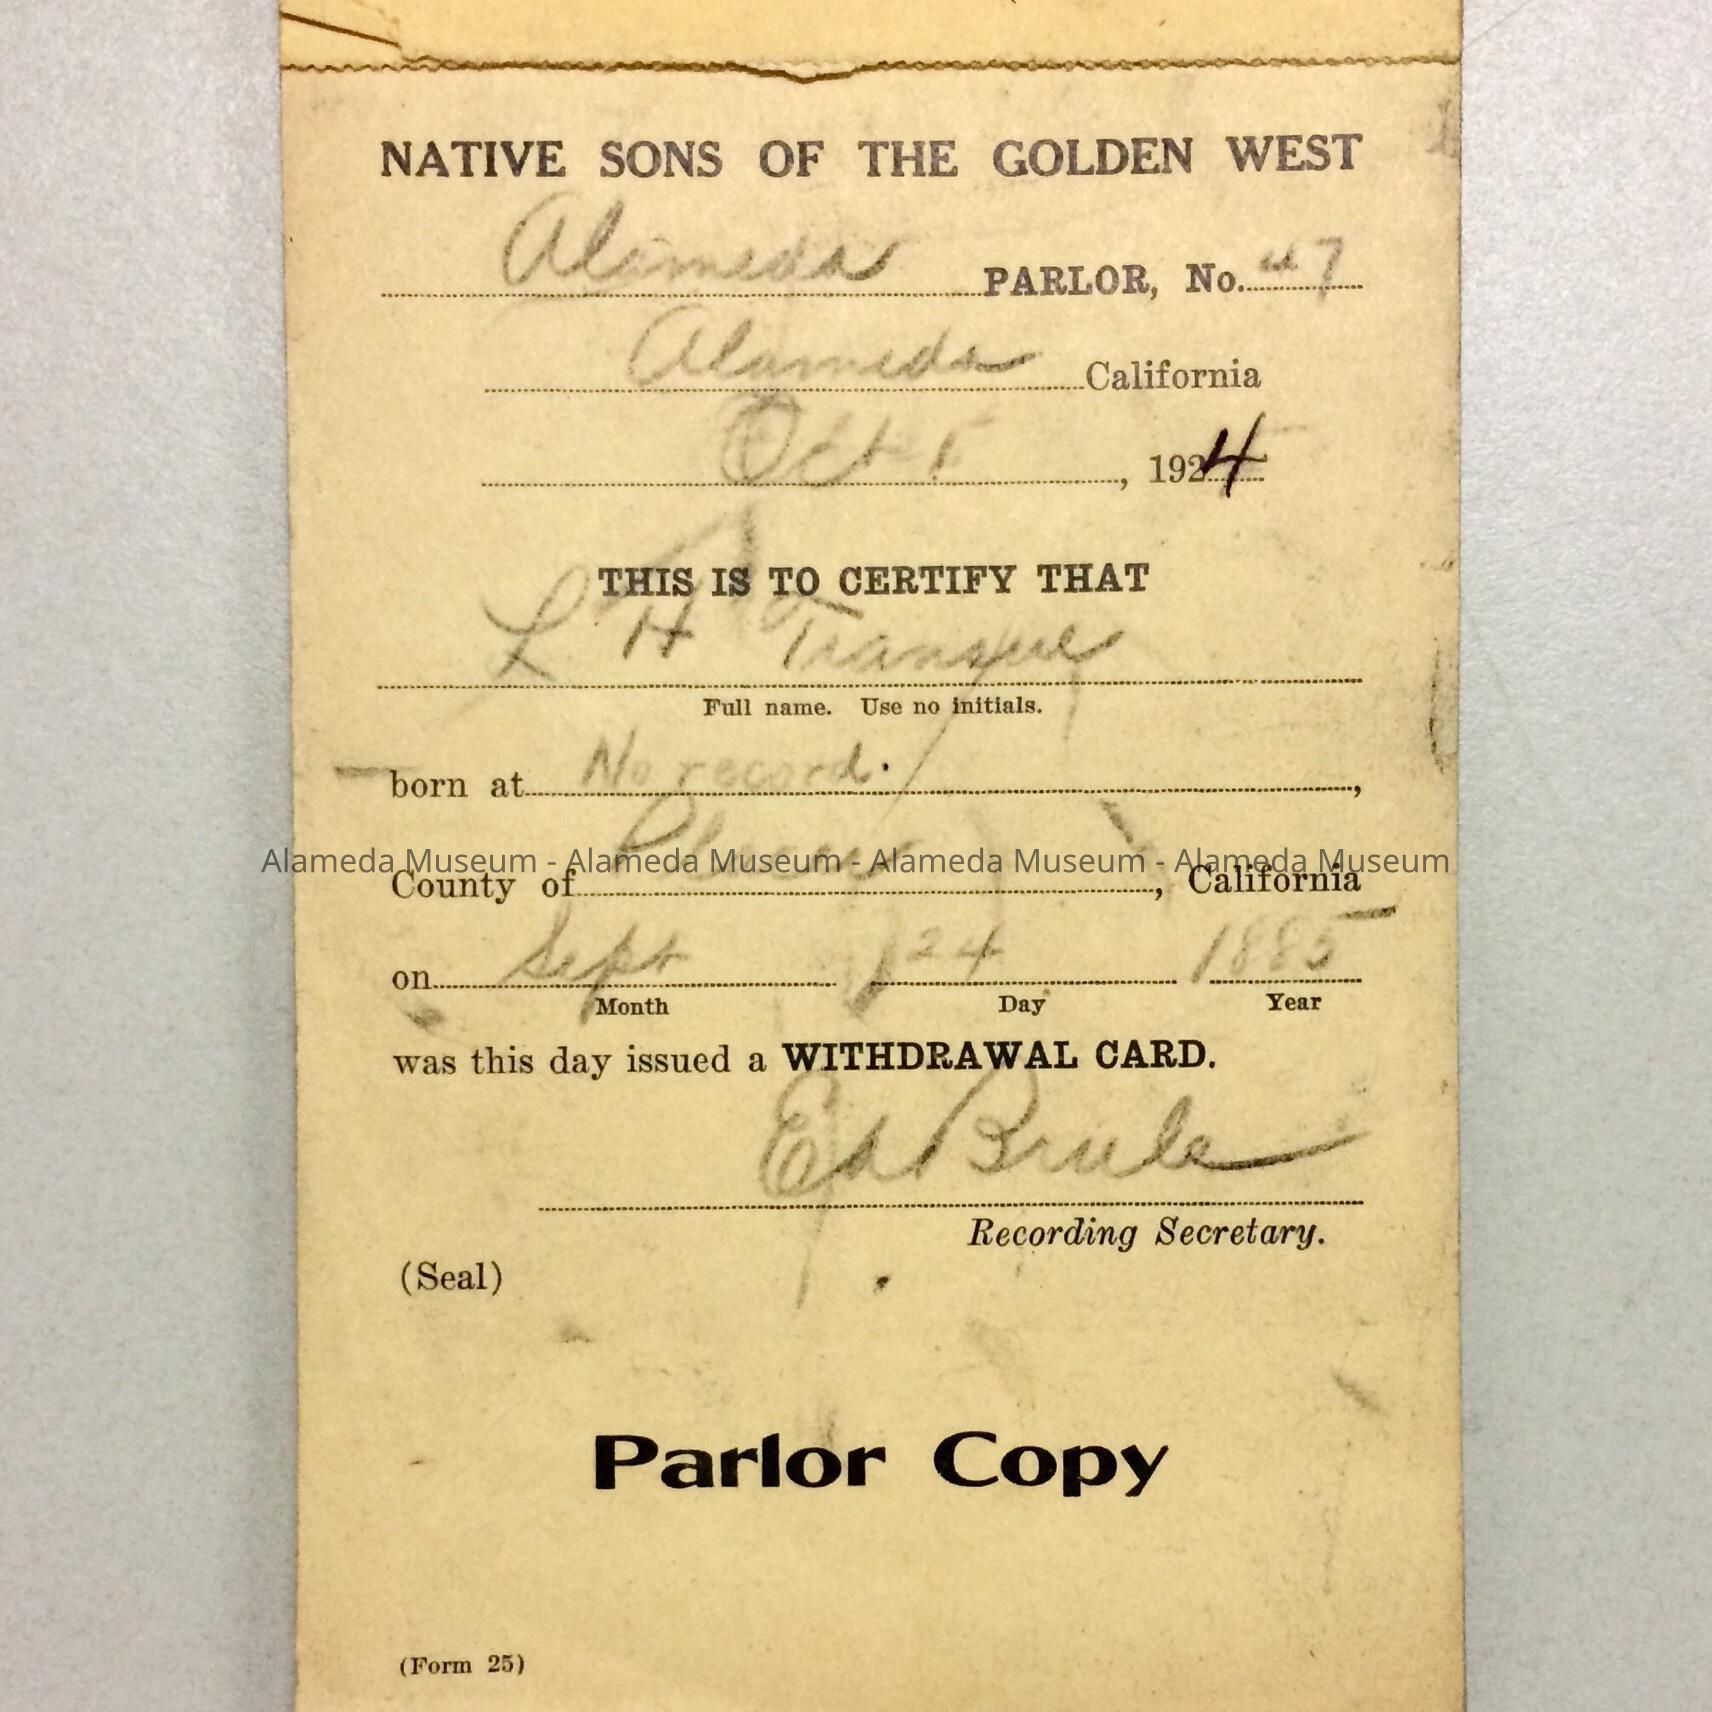 NATIVE SONS OF THE GOLDEN WEST
Alameda PARLOR, No. 47
Alameda California
Oct 1, 1924
THIS IS TO CERTIFY THAT
L H
Full name. Use no initials.
born at No record.,
Alameda Museum - Alameda Museum - Alameda Museum - Alameda Museum
County of, California
on Sept 24 1885
Month Day Year
was this day issued a WITHDRAWAL CARD.
Ed Brule
Recording Secretary.
(Seal)
Parlor Copy
(Form 25)